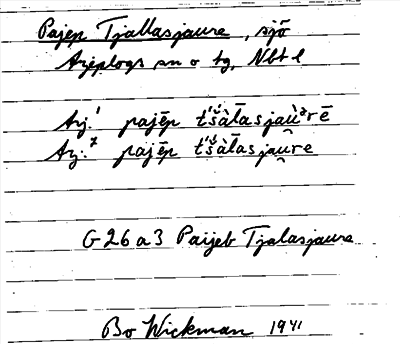 Pajep Tjallasjaure, sjö
Arjeplogs sn o tg, Nbt l
Arj.¹ pajēp t́š́àl̄asjaùrē
Arj.² pajēp t́š́àl̄asjau̯re
G26a3 Paijeb Tjalasjaure
Bo Wickman 1941